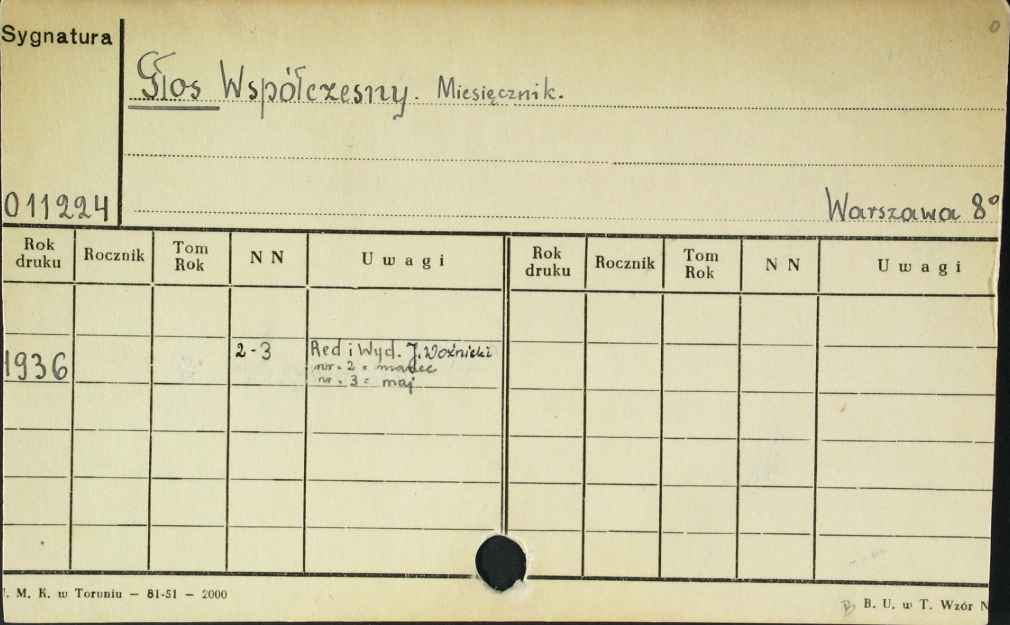 Sygnatura
Głos Współczesny. Miesięcznik.
011224
Warszawa 8°
Rok druku Rocznik Tom Rok N N Uwagi Rok druku Rocznik Tom Rok N N Uwagi
1936 2-3 Red i Wyd. J. Woźnicki
nr. 2 = marzec
nr. 3 = maj
. M. K. w Toruniu — 81-51 — 2000
B. U. w T. Wzór N